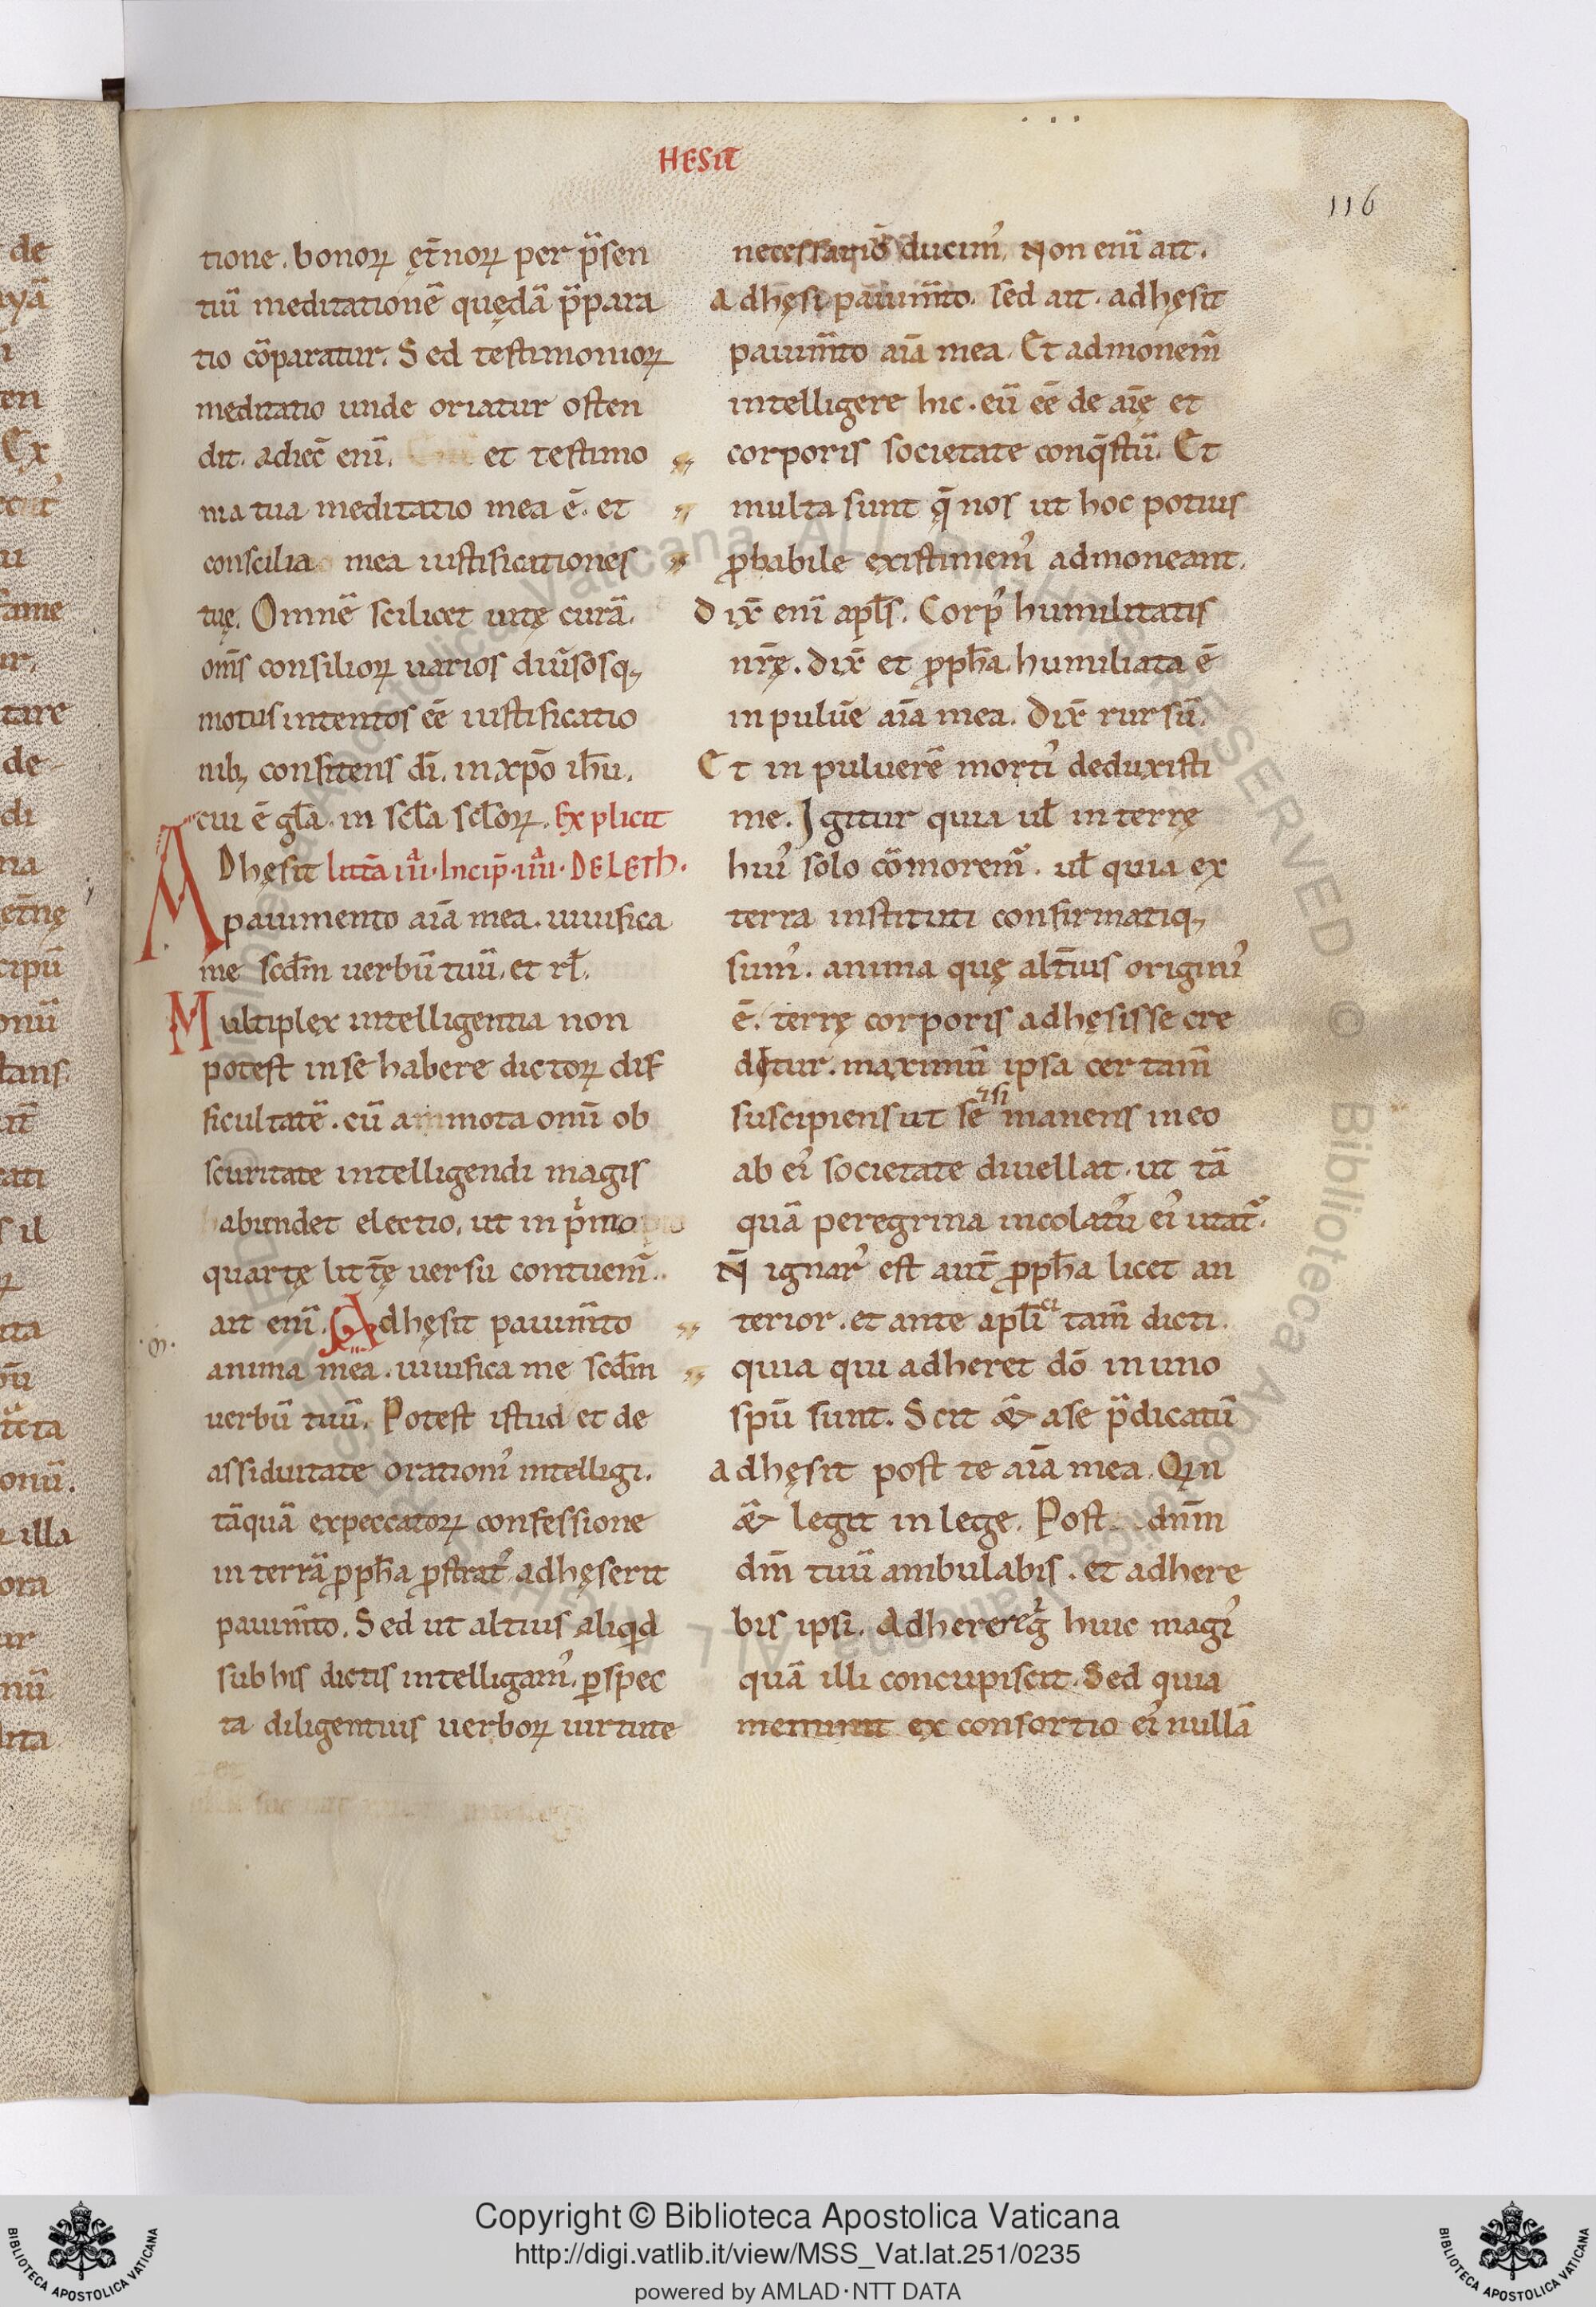 HESIT
116
tione. bonoꝝ ęt̄noꝝ per p̄sen
tiū meditationē quędā p̄para
tio cōparatur. Sed testimonioꝝ
meditatio unde oriatur osten
dit. adiec̄ enī. et testimo
nia tua meditatio mea ē. et
consilia mea iustificationes
tuę. Omnē scilicet uitę curā.
om̄s consilioꝝ uarios diūsosq;
motus intentos ēē iustificatio
nib; consitens dī. in xp̄o ihū.
cui ē gl̄a. in scl̄a scl̄oꝝ. Explicit
ADhęsit litt̄a iii. Incip̄ iiii. DELETH.
pauimento aīa mea. uiuifica
me scdm̄ uerbū tuū. et rł.
Multiplex intelligentia non
potest in se habere dictoꝝ dif
ficultatē. cū ammota om̄i ob
scuritate intelligendi magis
abundet electio. ut in p̄mo
quartę litt̄ę uersu contuem̄.
ait enī. Adhęsit pauim̄to
anima mea. uiuifica me scdm̄
uerbū tuū. Potest istud et de
assiduitate orationis intelligi.
tāquā ex peccatoꝝ confessione
in terrā ꝓph̄a ꝓstrat᾿ adhęserit
pauim̄to. Sed ut altius aliqd
sub his dictis intelligam᾿. ꝑspec
ta diligentius uerboꝝ uirtute
necessario ducim᾿. Non enī ait.
Adhęsi pauim̄to. sed ait. adhęsit
pauim̄to aīa mea. Et admonem̄
intelligere hic. eū ēē de aīę et
corporis societate conq̄stū. Et
multa sunt q̄ nos ut hoc potius
ꝓbabile existimem᾿ admoneant.
Dix̄ enī apłs. Corp᾿ humilitatis
nr̄ę. dix̄ et ꝓph̄a. humiliata ē
in pulūe aīa mea. Dix̄ rursū.
Et in puluerē mortis deduxisti
me. Igitur quia uł in terrę
hui᾿ solo cōmorem̄. uł quia ex
terra instituti confirmatiq;
sum᾿. anima quę alt̄ius originis
ē. terrę corporis adhęsisse cre
ditur. maximū ipsa certam̄
suscipiens ut se manens in eo
ab ei᾿ societate diuellat. ut tā
quā peregrina incolatu ei᾿ utat᾿.
N̄ ignar᾿ est aut̄ ꝓph̄a licet an
terior. et ante apłi ei tam̄ dicti.
quia qui adheret dō in uno
spū sunt. Scit &̄ a se p̄dicatū
Adhęsit post te aīa mea. Qn̄
&̄ legit in lege. Post dnm̄
dm̄ tuū ambulabis. et adhere
bis ipsi. Adherere g̊ huic magis
quā illi concupiscit. Sed quia
meminit ex consortio ei᾿ nullā
Copyright © Biblioteca Apostolica Vaticana
http://digi.vatlib.it/view/MSS_Vat.lat.251/0235
powered by AMLAD·NTT DATA
BIBLIOTECA APOSTOLICA VATICANA
BIBLIOTECA APOSTOLICA VATICANA